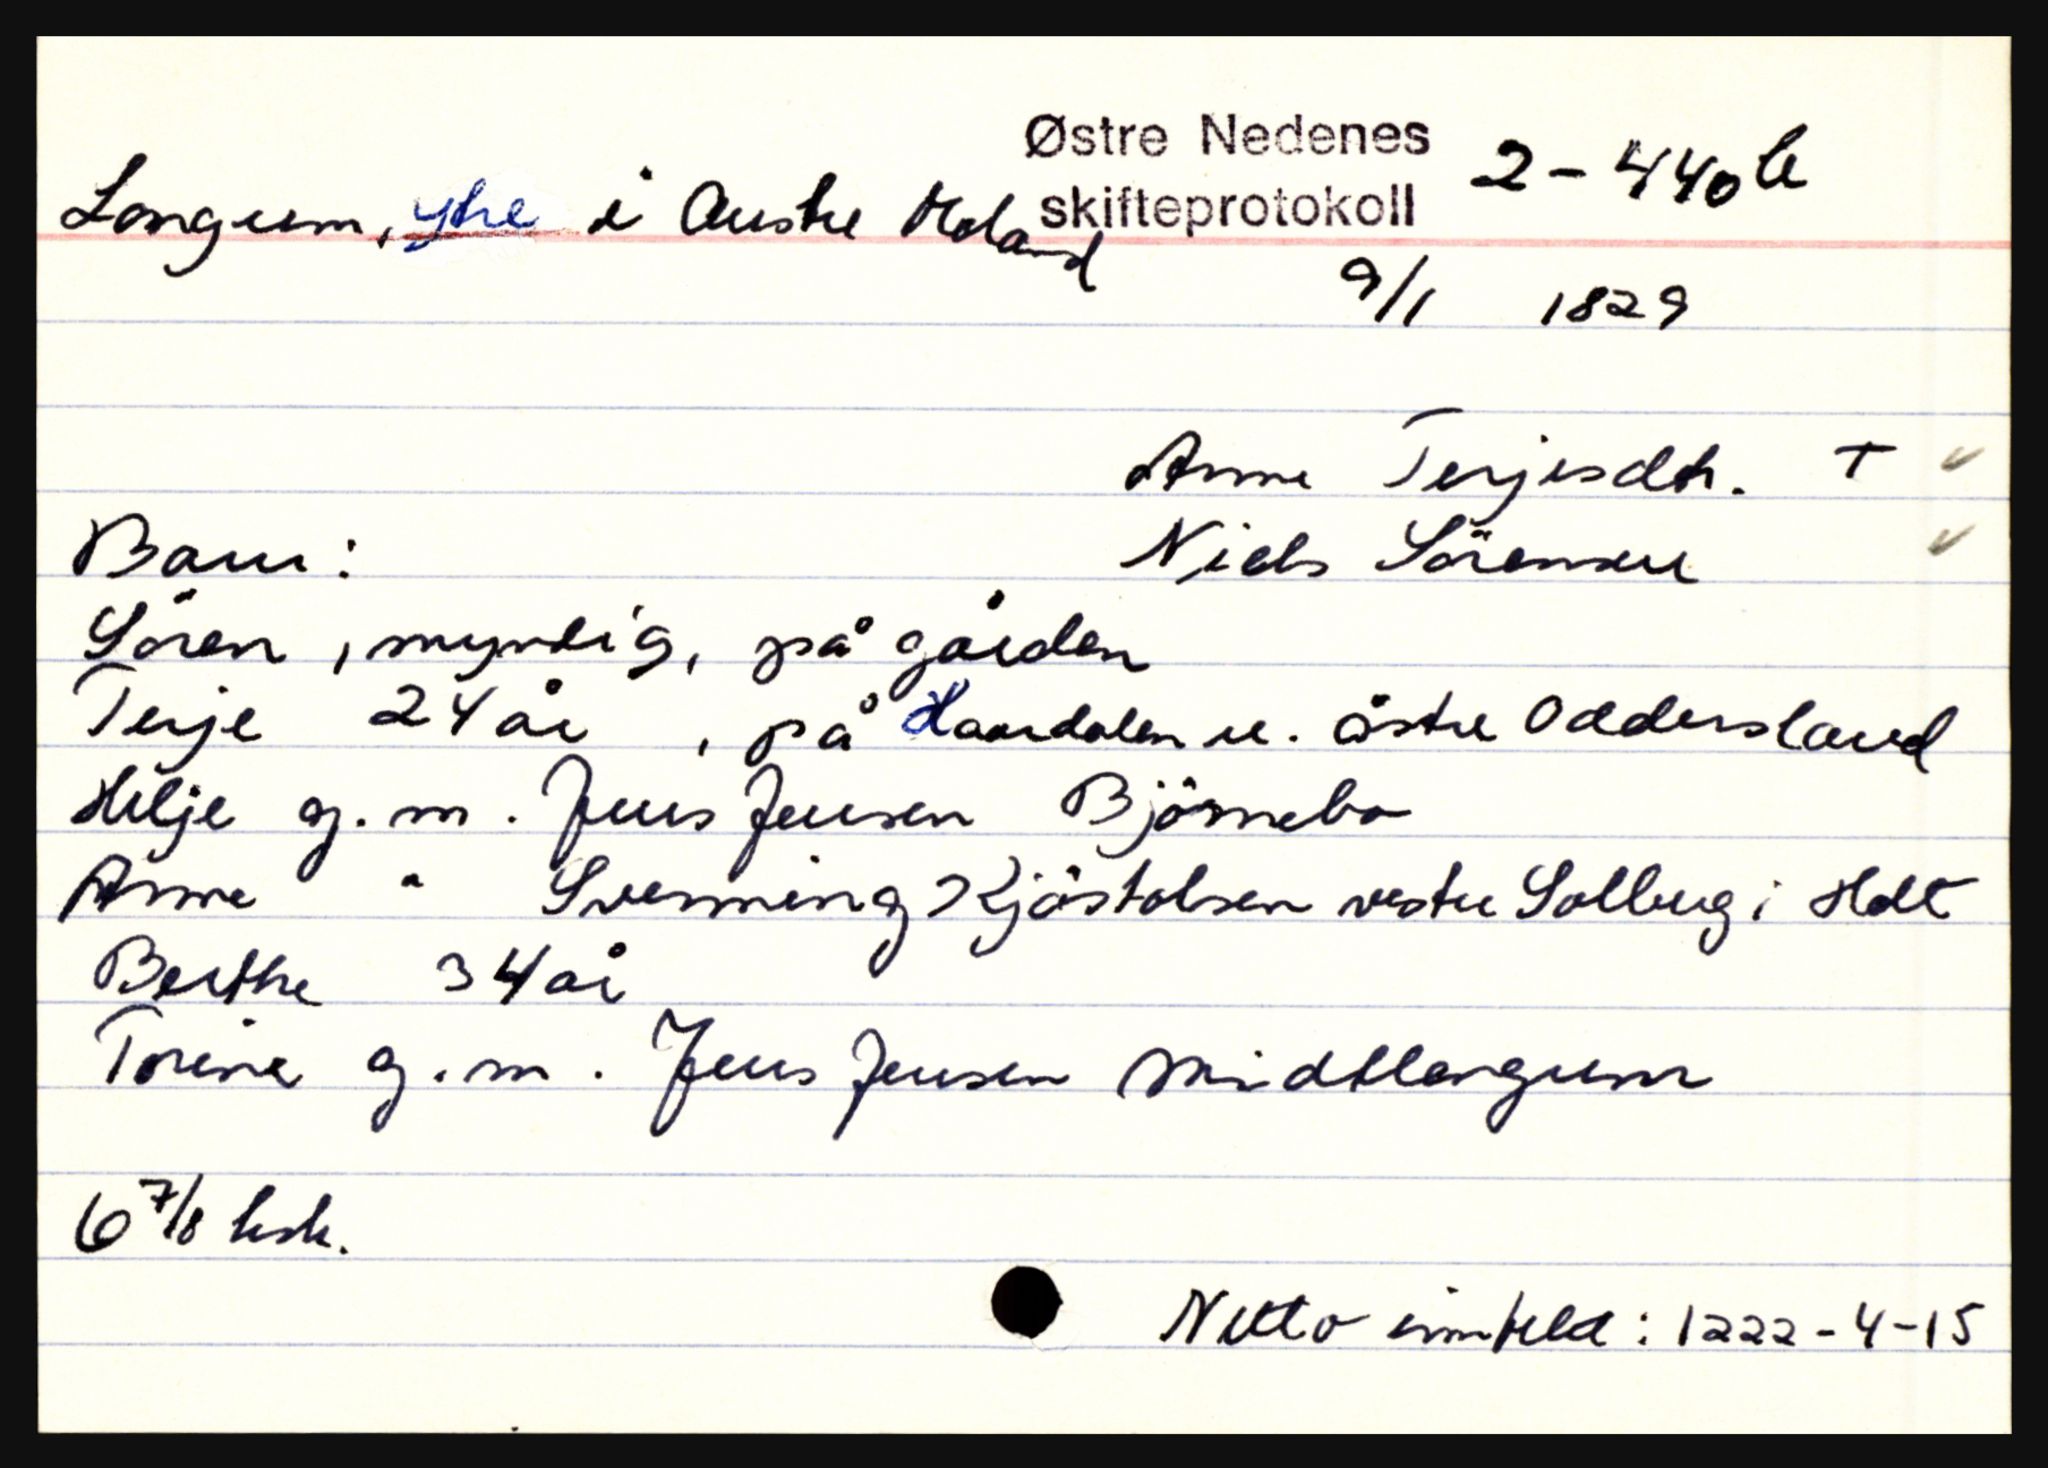 Østre Nedenes 2-440b
Longum, ytre i Austre Moland skifteprotokoll
9/1 1829
Anne Terjesdtr. +
Barn: Niels Sörensen
Sören, myndig, på gården
Terje 24 år, på Haardalen u. östre Oddersland
Helje g.m. Jens Jensen Björnebo
Anne " Svenning Kjöstolsen vestre Solberg i Holt
Berthe 34 år
Torine g.m. Jens Jensen Midtlongum
6 7/8 ksk.
Netto inntekt: 1222-4-15